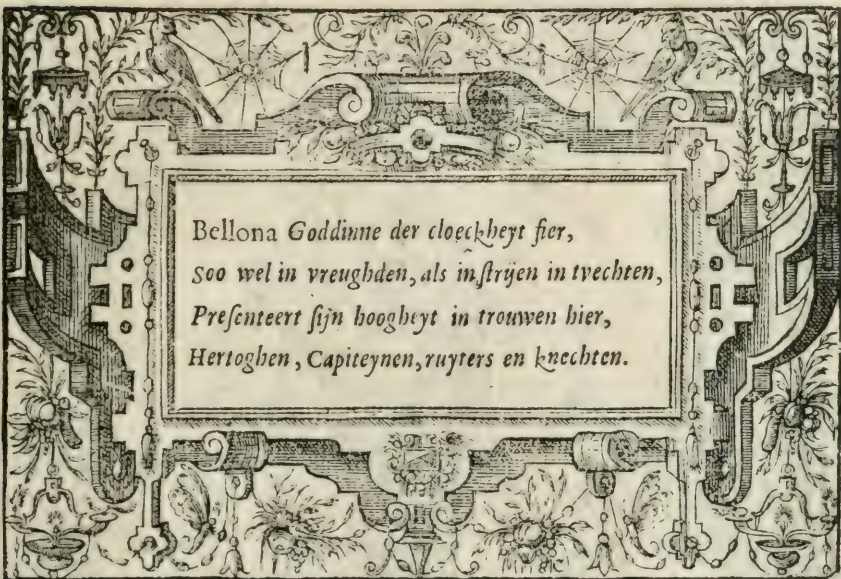 Bellona Goddinne der cloeckheyt fier,
soo wel in vreughden, als inſtrijen in tvechten,
Preſenteert ſijn hoogheyt in trouwen hier,
Hertoghen, Capiteynen, ruyters en knechten.